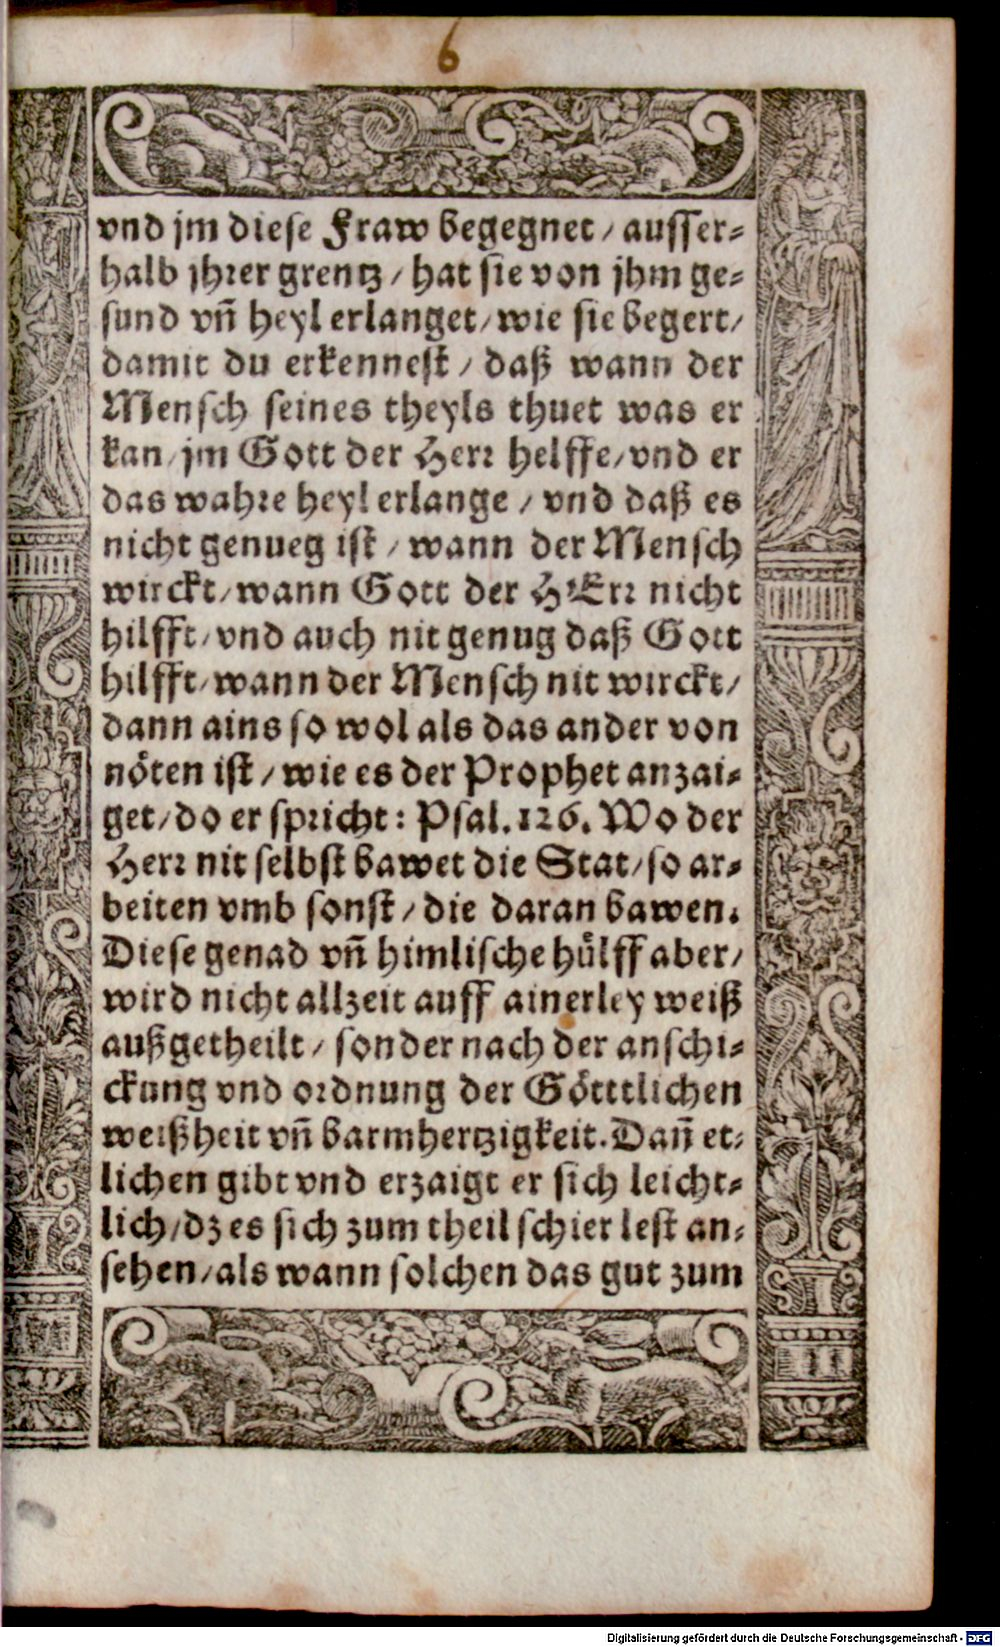 6
vnd jm diese Fraw begegnet / ausser⸗
halb jhrer grentz / hat sie von jhm ge⸗
sund vñ heyl erlanget / wie sie begert /
damit du erkennest / daß wann der
Mensch seines theyls thuet was er
kan / jm Gott der Herr helffe / vnd er
das wahre heyl erlange / vnd daß es
nicht genueg ist / wann der Mensch
wirckt / wann Gott der HErr nicht
hilfft / vnd auch nit genug daß Gott
hilfft / wann der Mensch nit wirckt /
dann ains so wol als das ander von
nöten ist / wie es der Prophet anzai⸗
get / do er spricht : Psal. 126. Wo der
Herr nit selbst bawet die Stat / so ar⸗
beiten vmb sonst / die daran bawen.
Diese genad vñ himlische hülff aber /
wird nicht allzeit auff ainerley weiß
außgetheilt / sonder nach der anschi⸗
ckung vnd ordnung der Götttlichen
weißheit vñ barmhertzigkeit. Dañ et⸗
lichen gibt vnd erzaigt er sich leicht⸗
lich / dz es sich zum theil schier lest an⸗
sehen / als wann solchen das gut zum
Digitalisierung gefördert durch die Deutsche Forschungsgemeinschaft - DFG